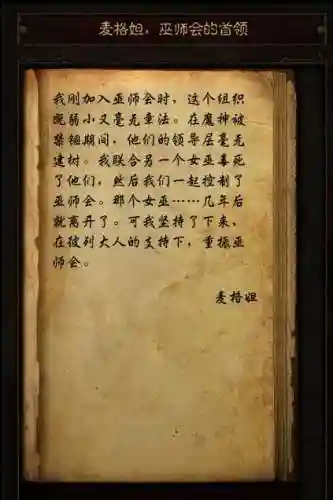 麦格妲，巫师会的首领
我刚加入巫师会时，这个组织
既弱小又毫无章法。在魔神被
禁锢期间，他们的领导层毫无
建树。我联合另一个女巫毒死
了他们，然后我们一起控制了
巫师会。那个女巫……几年后
就离开了。可我坚持了下来，
在彼列大人的支持下，重振巫
师会。
麦格妲